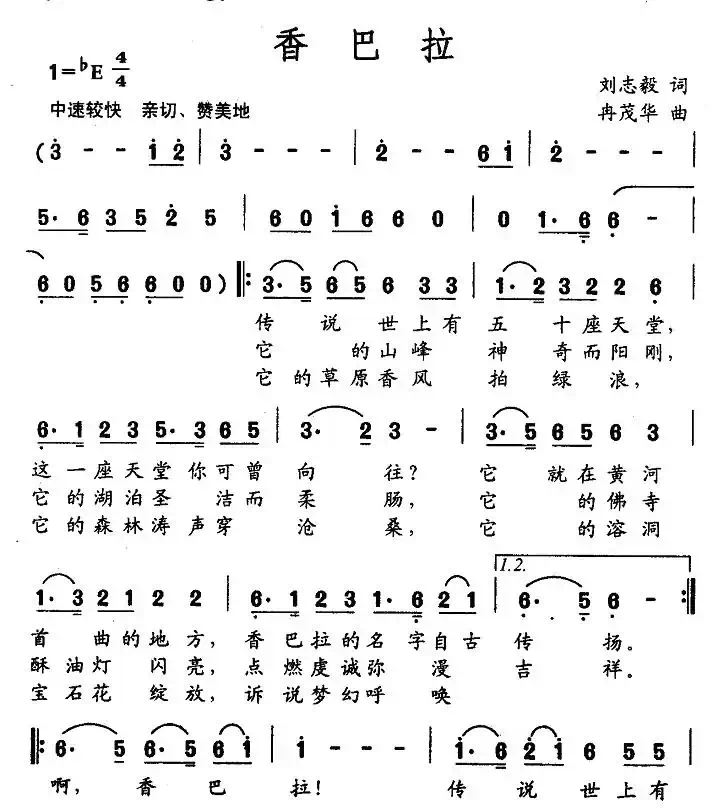 香巴拉
1=♭E 4/4
刘志毅 词
中速较快 亲切、赞美地
冉茂华 曲
(3 - - 1 2 | 3 - - - | 2 - - 6 1 | 2 - - - |
5· 6 3 5 2 5 | 6 0 1 6 6 0 | 0 1· 6 6 - |
6 0 5 6 6 0 0 ) ‖: 3· 5 6 5 6 3 3 | 1· 2 3 2 2 6 |
传 说 世上有 五 十座天堂,
它 的山峰 神 奇而阳刚,
它 的草原香风 拍 绿 浪,
6· 1 2 3 5· 3 6 5 | 3· 2 3 - | 3· 5 6 5 6 3 |
这一座天堂你可曾 向 往? 它 就在黄河
它的湖泊圣 洁而 柔 肠, 它 的佛寺
它的森林涛声穿 沧 桑, 它 的溶洞
1.2.
1· 3 2 1 2 2 | 6· 1 2 3 1· 6 2 1 | 6· 5 6 - :‖
首 曲的地方, 香巴拉的名字自古 传 扬。
酥油灯 闪亮, 点燃虔诚弥 漫 吉 祥。
宝石花 绽放, 诉说梦幻呼 唤
‖: 6· 5 6· 5 6 1 | 1 - - - | 1· 6 2 1 6 5 5 |
啊, 香 巴 拉! 传 说 世上有